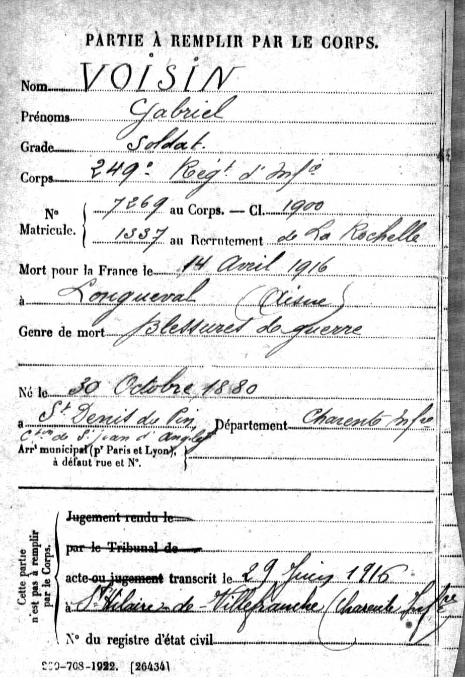 PARTIE À REMPLIR PAR LE CORPS.
Nom VOISIN
Prénoms Gabriel
Grade Soldat.
Corps 249e Régt d'Infie
Nº 7269 au Corps. — Cl. 1900
Matricule. 1337 au Recrutement de La Rochelle
Mort pour la France le 14 Avril 1916
à Longueval (Aisne)
Genre de mort blessures de guerre
Né le 30 Octobre 1880
à St Denis du Pin Département Charente Infre
Cton de St Jean d'Angély
Arrt municipal (pr Paris et Lyon),
à défaut rue et Nº.
Cette partie
n'est pas à remplir
par le Corps.
Jugement rendu le
par le Tribunal de
acte ou jugement transcrit le 29 Juin 1916
à St Hilaire-de-Villefranche (Charente Infre
Nº du registre d'état civil
-708-1922. [26434]